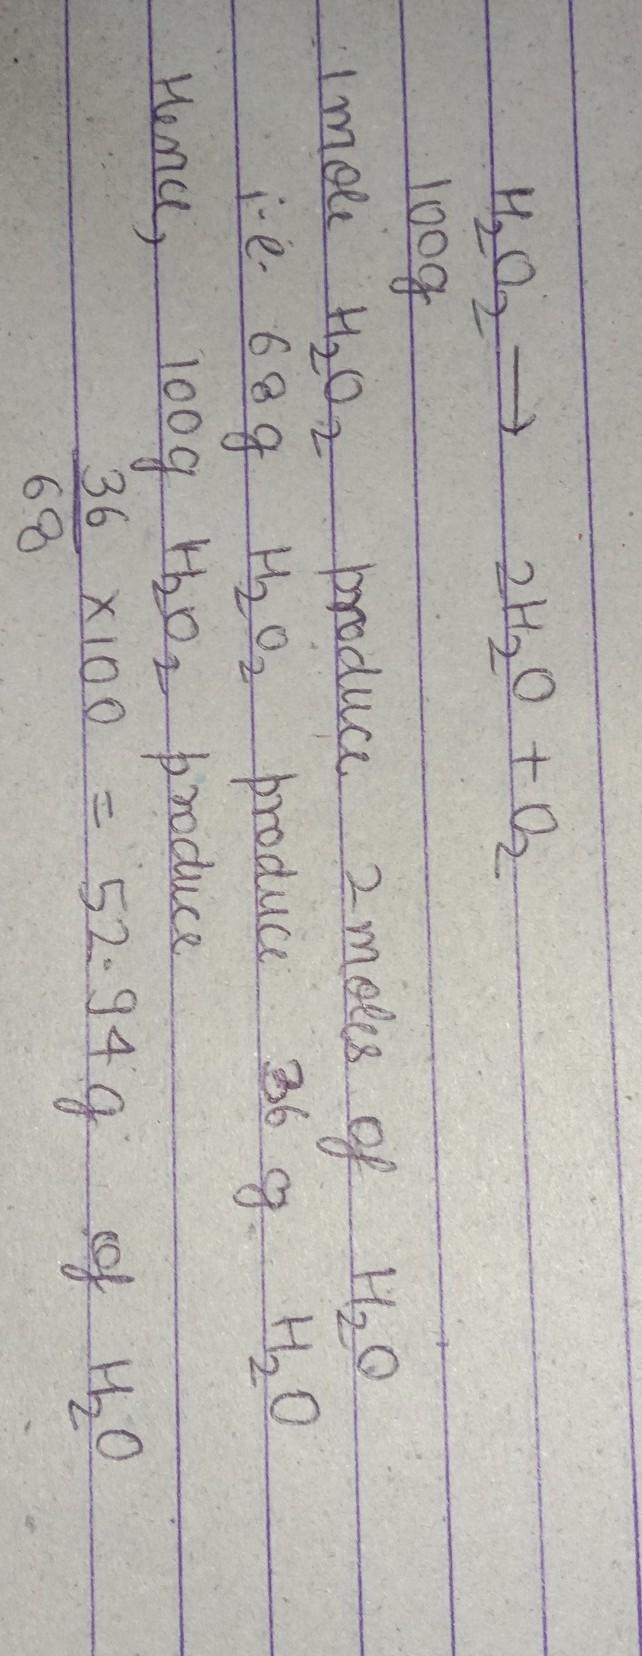 H₂O₂ ⟶ 2H₂O + O₂
100g
1 mole H₂O₂ produce 2 moles of H₂O
i.e. 68g H₂O₂ produce 36 g H₂O
Hence, 100g H₂O₂ produce
36/68 × 100 = 52.94 g of H₂O